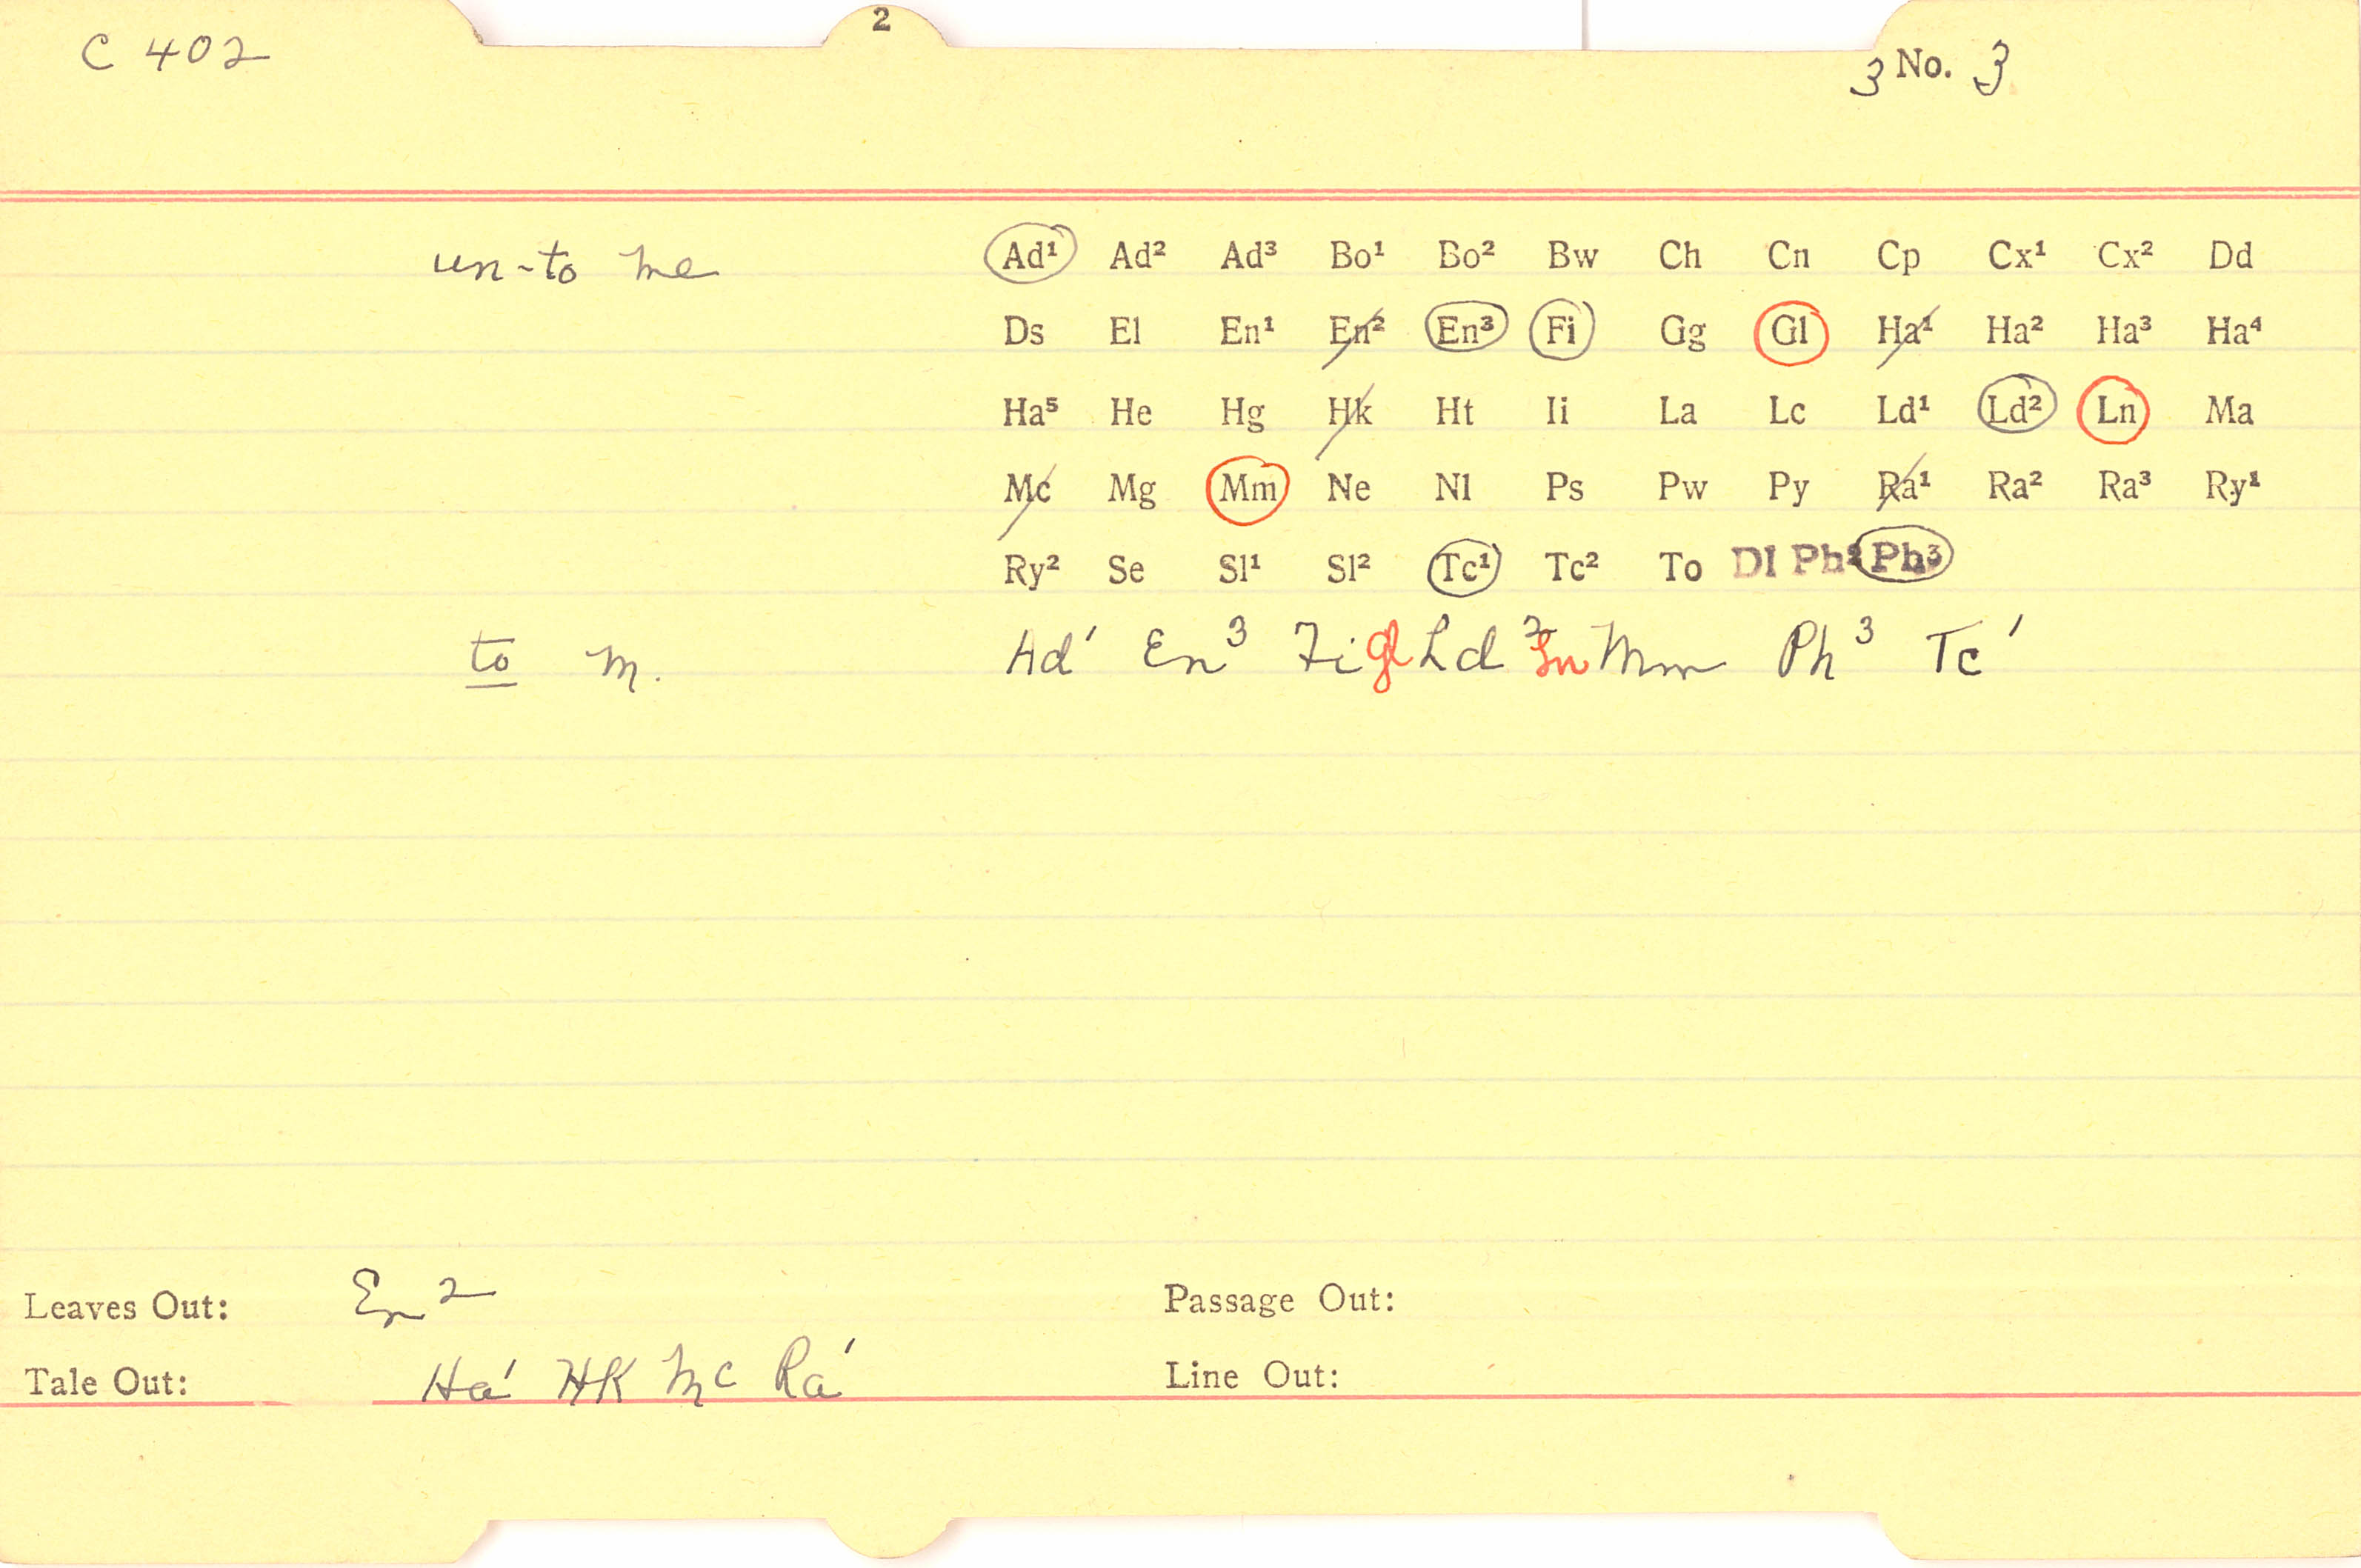 2
C 402
3 No. 3
un-to me Ad¹ Ad² Ad³ Bo¹ Bo² Bw Ch Cn Cp Cx¹ Cx² Dd
Ds El En¹ En² En³ Fi Gg Gl Ha¹ Ha² Ha³ Ha⁴
Ha⁵ He Hg Hk Ht Ii La Lc Ld¹ Ld² Ln Ma
Mc Mg Mm Ne Nl Ps Pw Py Ra¹ Ra² Ra³ Ry¹
Ry² Se Sl¹ Sl² Tc¹ Tc² To Dl Ph² Ph³
to m. Ad¹ En³ Fi Gl Ld² Ln Mm Ph³ Tc¹
Leaves Out: En² Passage Out:
Tale Out: Ha¹ HK Mc Ra¹ Line Out: